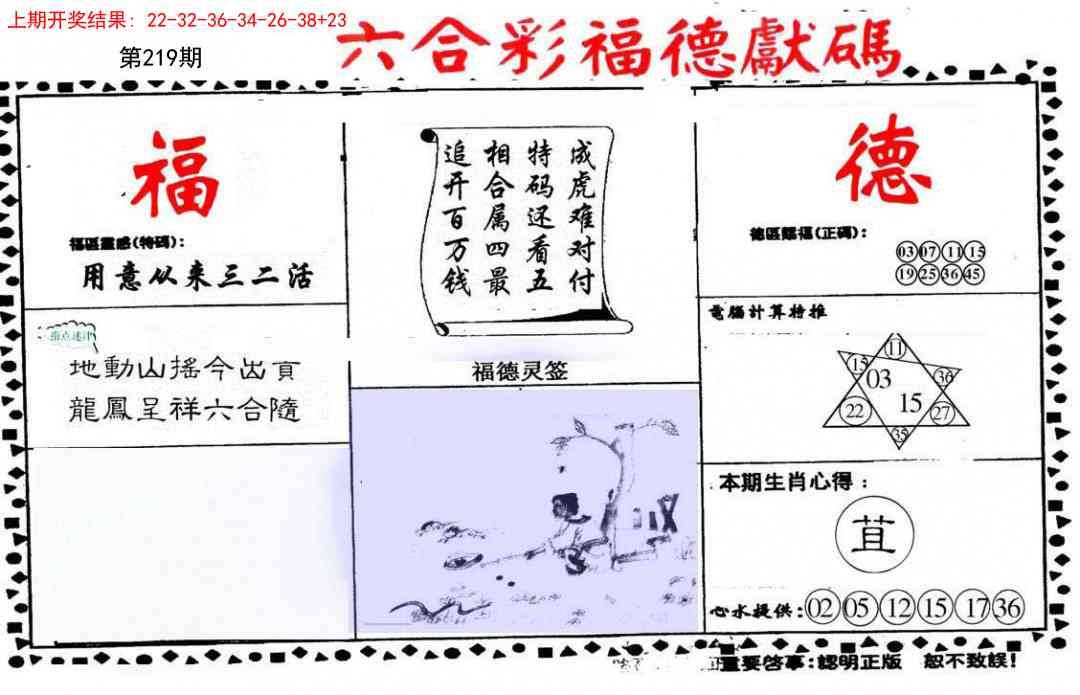 上期开奖结果: 22-32-36-34-26-38+23
第219期
六合彩福德獻碼
福
福區靈感(特碼):
用意从来三二活
地動山搖今出頁
龍鳳呈祥六合隨
成虎难对付
特码还看五
相合属四最
追开百万钱
福德灵签
德
德區賜福(正碼):
03 07 11 15
19 25 36 45
電腦計算特推
11
15
36
03
15
22
27
35
本期生肖心得:
苴
心水提供: 02 05 12 15 17 36
重要啓事:認明正版 恕不致誤!